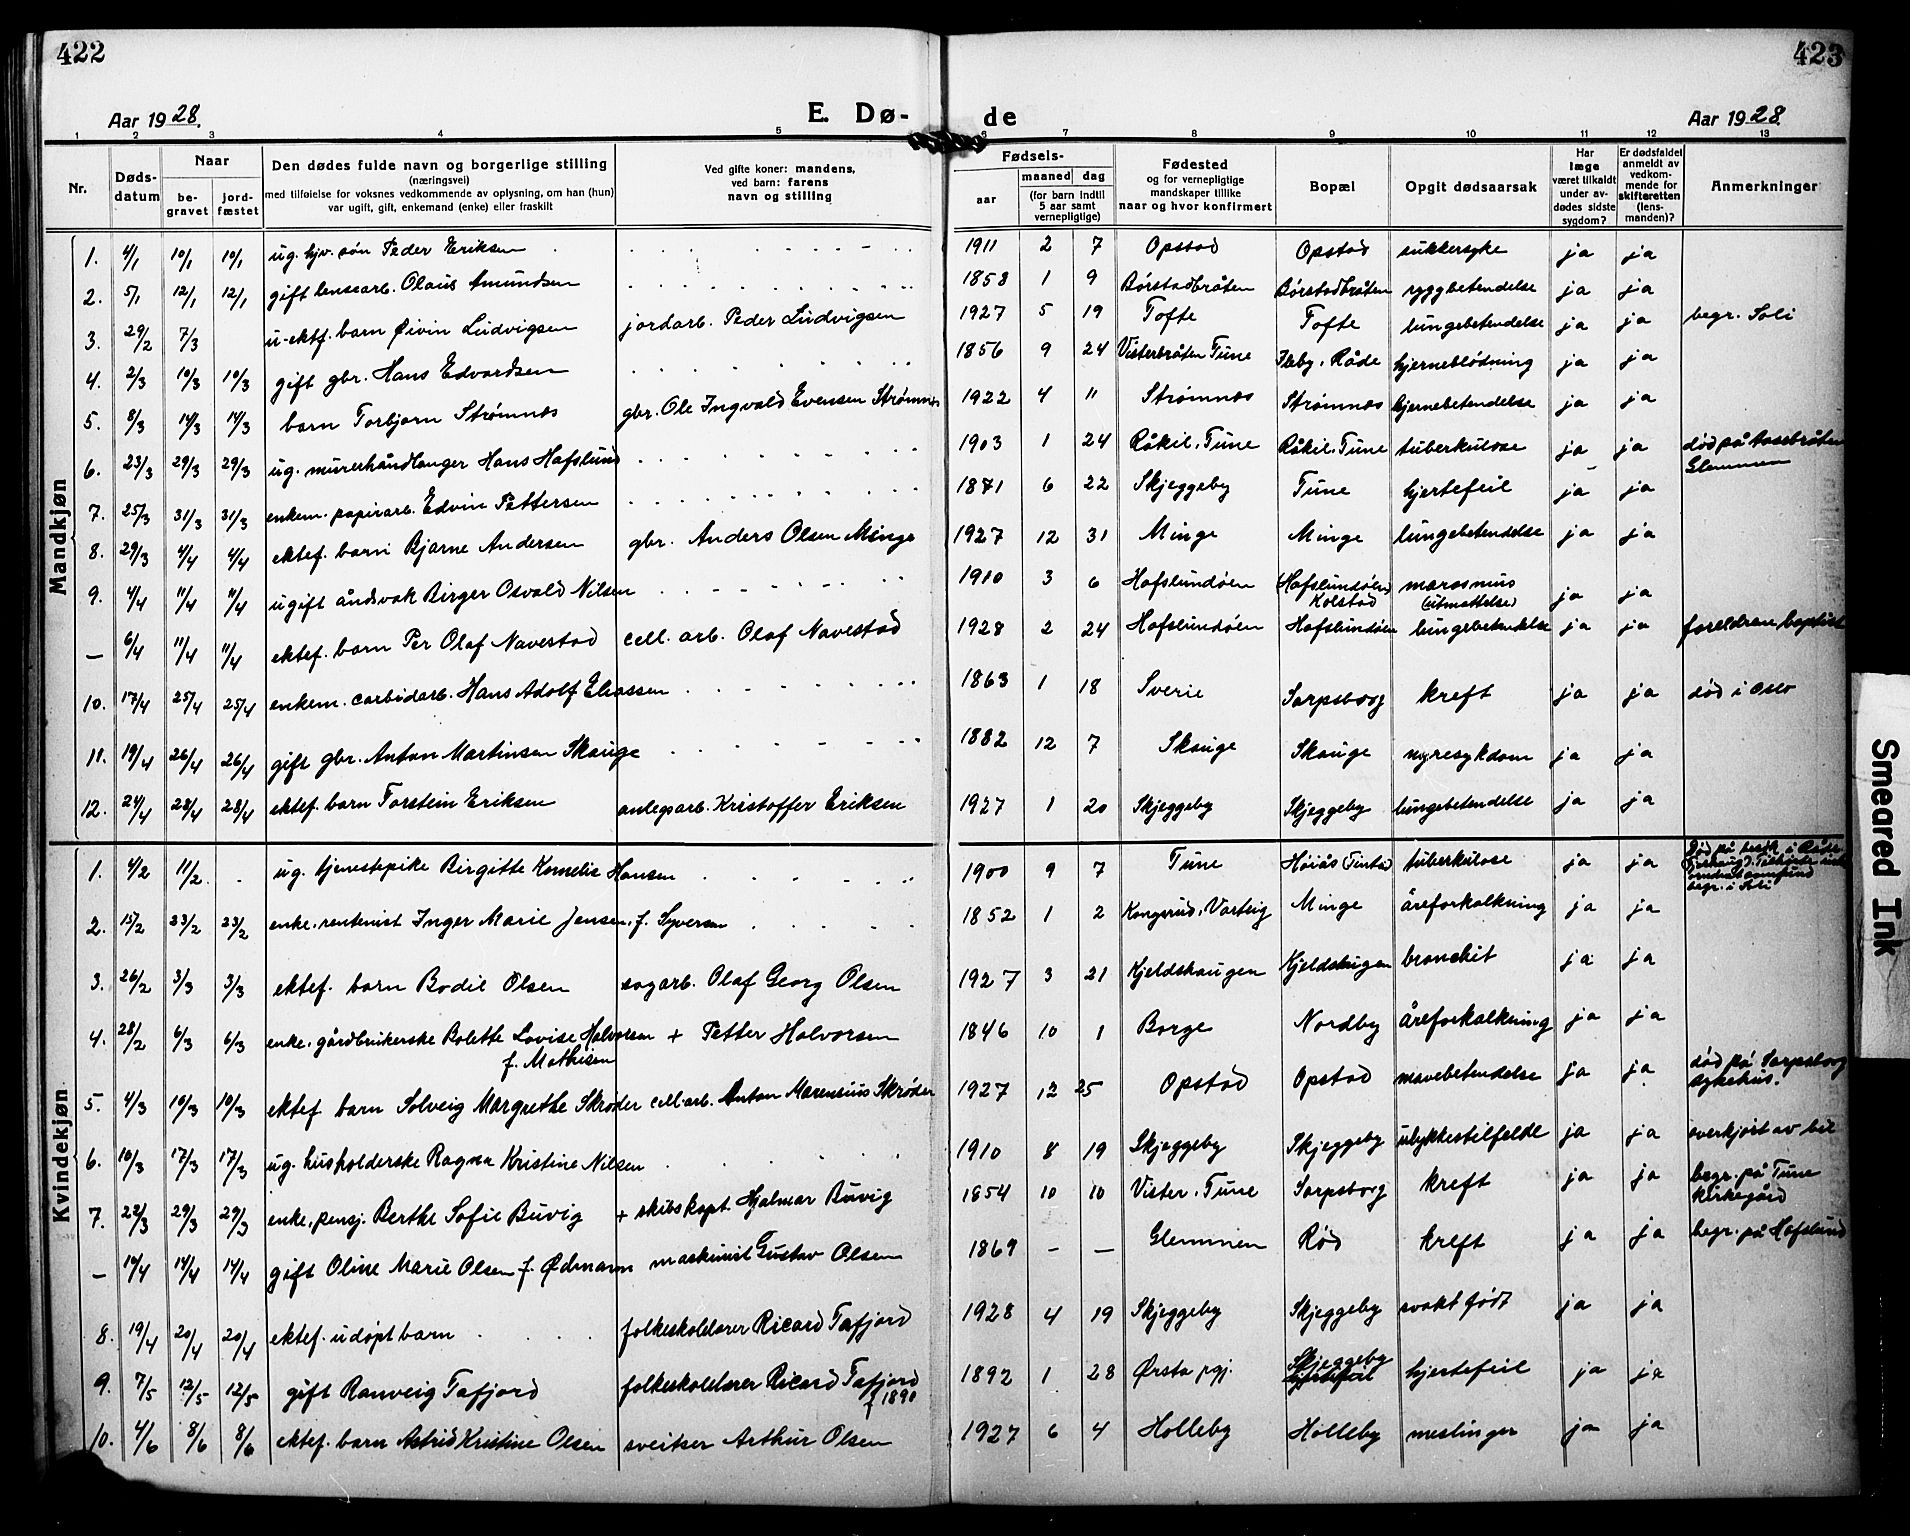 422
423
Aar 1928.
E. Dø-
de
Aar 1928.
1 2 3 4 5 6 7 8 9 10 11 12 13
Nr.
Døds-
datum
Naar
be-
gravet
jord-
fæstet
Den dødes fulde navn og borgerlige stilling
(næringsvei)
med tilføielse for voksnes vedkommende av oplysning, om han (hun)
var ugift, gift, enkemand (enke) eller fraskilt
Ved gifte koner: mandens,
ved barn: farens
navn og stilling
Fødsels-
aar
maaned dag
(for barn indtil
5 aar samt
vernepligtige)
Fødested
og for vernepligtige
mandskaper tillike
naar og hvor konfirmert
Bopæl
Opgit dødsaarsak
Har
læge
været tilkaldt
under av-
dødes sidste
sygdom?
Er dødsfaldet
anmeldt av
vedkom-
mende for
skifteretten
(lens-
manden)?
Anmerkninger
Mandkjøn
1. 4/1 10/1 10/1 ug. hjv. søn Peder Eriksen 1911 2 7 Opstad Opstad sukkersyke ja ja
2. 5/1 12/1 12/1 gift lensearb. Olaus Amundsen 1858 1 9 Børstadbråten Børstadbråten ryggbetendelse ja ja
3. 29/2 7/3 u-ektf. barn Øivin Ludvigsen jordarb. Peder Ludvigsen 1927 5 19 Tofte Tofte lungebetendelse ja ja begr. Soli
4. 2/3 10/3 10/3 gift gbr. Hans Edvardsen 1856 9 24 Visterbråten Tune Råde hjerneblødning ja ja
5. 8/3 14/3 14/3 barn Torbjørn Strømnæs gbr. Ole Ingvald Evensen Strømnæs 1922 4 11 Strømnæs Strømnæs hjernebetendelse ja ja
6. 23/3 29/3 29/3 ug. murerhåndlanger Hans Hafslund 1903 1 24 Råkil, Tune Råkil, Tune tuberkulose ja ja død på
Glemmen
7. 25/3 31/3 31/3 enkem. papirarb. Edvin Pettersen 1871 6 22 Skjeggeby Tune hjertefeil ja ja
8. 29/3 4/4 4/4 ektef. barn Bjarne Andersen gbr. Anders Olsen Minge 1927 12 31 Minge Minge lungebetendelse ja ja
9. 4/4 11/4 11/4 ugift åndsvak Birger Osvald Nilsen 1910 3 6 Hafslundøen (Hafslundøen) marasmus ja ja
Kolstad (utmattelse)
— 6/4 11/4 11/4 ektef. barn Per Olaf Navestad cell. arb. Olaf Navestad 1928 2 24 Hafslundøen Hafslundøen lungebetendelse ja ja foreldrene baptist
10. 17/4 25/4 25/4 enkem. carbidarb. Hans Adolf Eliassen 1863 1 18 Sverie Sarpsborg kreft ja ja død i Oslo
11. 19/4 26/4 26/4 gift gbr. Anton Martinsen Skauge 1882 12 7 Skauge Skauge nyresykdom ja ja
12. 24/4 28/4 28/4 ektef. barn Torstein Eriksen anlegsarb. Kristoffer Eriksen 1927 1 20 Skjeggeby Skjeggeby lungebetendelse ja ja
Kvindekjøn
1. 4/2 11/2 - ug. tjenestepike Birgitte Kornelie Hansen 1900 9 7 Tune Høiås (Tistad) tuberkulose ja ja
begr. i Soli
2. 15/2 23/2 23/2 enke. rentenist Inger Marie Jensen, f. Syversen 1852 1 2 Kongsrud, Varteig Minge åreforkalkning ja ja
3. 26/2 3/3 3/3 ektef. barn Bodil Olsen sagarb. Olaf Georg Olsen 1927 3 21 Kjeldshaugen Kjeldshaugen bronchit ja ja
4. 28/2 6/3 6/3 enke. gårdbrukerske Bolette Lovise Halvorsen + Petter Halvorsen 1846 10 1 Borge Nordby åreforkalkning ja ja
f. Mathisen
5. 4/3 10/3 10/3 ektef barn Solveig Margrethe Skrøder cell. arb. Anton Marensius Skrøder 1927 12 25 Opstad Opstad mavebetendelse ja ja død på Sarpsborg
sykehus.
6. 10/3 17/3 17/3 ug. husholderske Ragna Kristine Nilsen 1910 8 19 Skjeggeby Skjeggeby ulykkestilfelde ja ja overkjørt av bil
7. 22/3 29/3 29/3 enke, pensj. Berthe Sofie Buvig + skibskapt. Hjalmar Buvig 1854 10 10 Vister, Tune Sarpsborg kreft ja ja begr. på Tune
kirkegård
— 14/4 14/4 gift Oline Marie Olsen f. Ødmann maskinist Gustav Olsen 1869 — — Glemmen Rød kreft ja ja begr. på Hafslund
8. 19/4 20/4 20/4 ektef. udøpt barn folkeskolelærer Ricard Tafjord 1928 4 19 Skjeggeby Skjeggeby svakt født ja ja
9. 7/5 12/5 12/5 gift Ranveig Tafjord folkeskolelærer Ricard Tafjord 1892 1 28 Ørsta pgj. Skjeggeby hjertefeil ja ja
f 1890
10. 4/6 8/6 8/6 ektef. barn Astrid Kristine Olsen sveitser Arthur Olsen 1927 6 4 Holleby Holleby meslinger ja ja
Smeared Ink